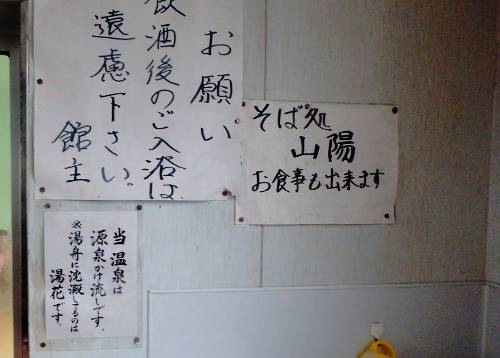 お願い
飲酒後のご入浴は
遠慮下さい。
館主
そば処
山陽
お食事も出来ます
当温泉は
源泉かけ流しです。
※湯舟に沈澱してるのは
湯花です。